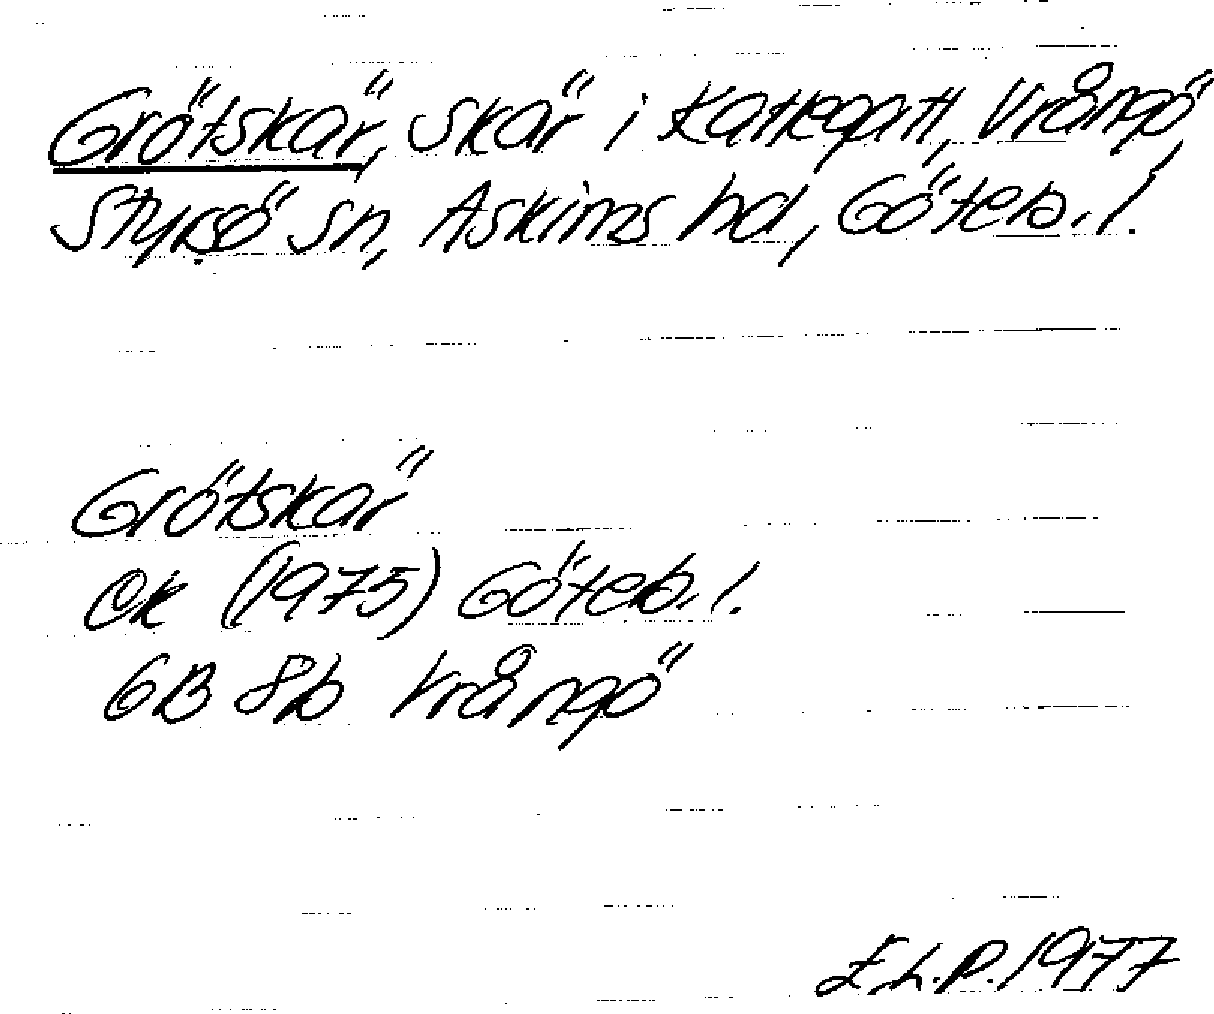 Grötskär, skär i Kattegatt, Vrångö,
Styrsö sn, Askims hd, Göteb. l.
Grötskär
EK (1975) Göteb. l.
6B 8b Vrångö
E.L.P. 1977